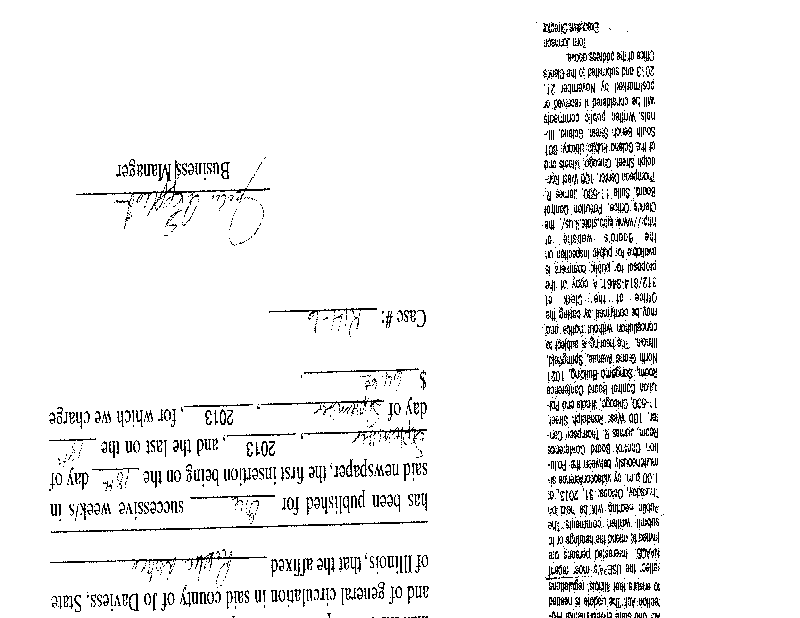 and of general circulation in said county of Jo Daviess, State
of Illinois, that the affixed Public Notice
has been published for one successive week/s in
said newspaper, the first insertion being on the 18th day of
September, 2013, and the last on the 18th
day of September, 2013, for which we charge
$
Case #: R14-6
Business Manager
to ensure that Illinois regulations
reflect the USEPA's most recent
NAAQS. Interested persons are
invited to attend the hearings or to
submit written comments. The
public hearing will be held on
Thursday, October 31, 2013, at
1:00 p.m. by videoconference si-
multaneously between the Pollu-
tion Control Board Conference
Room, James R. Thompson Cen-
ter, 100 West Randolph Street,
11-500, Chicago, Illinois and Pol-
lution Control Board Conference
Room, Sangamo Building, 1021
North Grand Avenue, Springfield,
Illinois. The hearing is subject to
cancellation without notice and
may be confirmed by calling the
Office of the Clerk at
312/814-3461. A copy of the
proposal for public comment is
available for public inspection on
the Board's website at
http://www.ipcb.state.il.us/, the
Clerk's Office, Pollution Control
Board, Suite 11-500, James R.
Thompson Center, 100 West Ran-
dolph Street, Chicago, Illinois and
at the Galena Public Library, 601
South Bench Street, Galena, Illi-
nois. Written public comments
will be considered if received or
postmarked by November 21,
2013 and submitted to the Clerk's
Office at the address above.
Tom Johnson
Executive Director